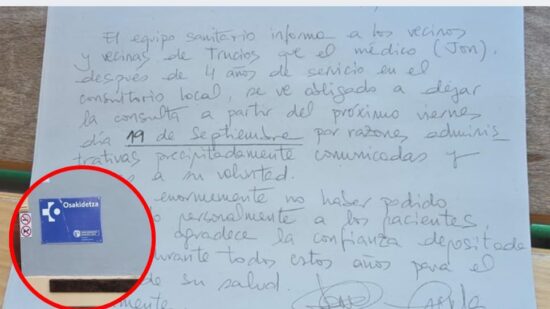 El equipo sanitario informa a los vecinos
y vecinas de Trucios que el médico (Jon),
después de 4 años de servicio en el
consultorio local, se ve obligado a dejar
la consulta a partir del próximo viernes
día 19 de Septiembre por razones adminis
trativas precipitadamente comunicadas y
a su voluntad.
enormemente no haber podido
personalmente a los pacientes,
agradece la confianza depositada
durante todos estos años para el
de su salud.
Osakidetza